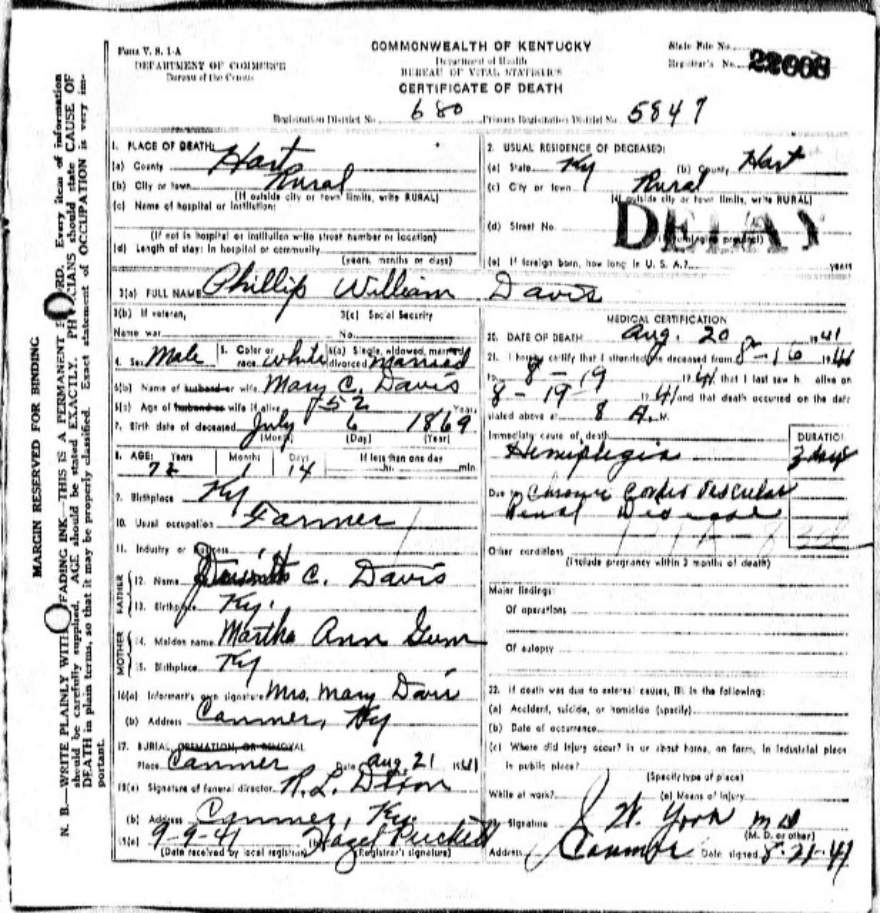 Form V. S. 1-A
DEPARTMENT OF COMMERCE
Bureau of the Census
COMMONWEALTH OF KENTUCKY
Department of Health
BUREAU OF VITAL STATISTICS
CERTIFICATE OF DEATH
State File No.
Registrar's No. 22008
Registration District No. 680 Primary Registration District No. 5847
MARGIN RESERVED FOR BINDING
N. B.—WRITE PLAINLY WITH FADING INK—THIS IS A PERMANENT RD. Every item of information
should be carefully supplied. AGE should be stated EXACTLY. PHYSICIANS should state CAUSE OF
DEATH in plain terms, so that it may be properly classified. Exact statement of OCCUPATION is very im-
portant.
1. PLACE OF DEATH:
(a) County Hart
(b) City or town Rural
(If outside city or town limits, write RURAL)
(c) Name of hospital or institution:
(If not in hospital or institution write street number or location)
(d) Length of stay: In hospital or community
(years, months or days)
2. USUAL RESIDENCE OF DECEASED:
(a) State Ky (b) County Hart
(c) City or town Rural
(If outside city or town limits, write RURAL)
(d) Street No.
DELAY
(e) If foreign born, how long in U. S. A.? years
3(a) FULL NAME Phillip William Davis
3(b) If veteran, 3(c) Social Security
Name war No.
4. Sex Male 5. Color or race White 6(a) Single, widowed, married, divorced Married
6(b) Name of husband or wife Mary C. Davis
6(c) Age of husband or wife if alive 52 Years
7. Birth date of deceased July 6 1869
(Month) (Day) (Year)
8. AGE: Years Months Days If less than one day
72 1 14 hr. min.
9. Birthplace Ky
10. Usual occupation Farmer
11. Industry or Business
FATHER
12. Name C. Davis
13. Birthplace Ky.
MOTHER
14. Maiden name Martha Ann Gum
15. Birthplace Ky
16(a) Informant's own signature Mrs. Mary Davis
(b) Address Canmer, Ky
17. BURIAL, CREMATION, OR REMOVAL
Place Canmer Date Aug. 21 1941
18(a) Signature of funeral director R. L. Dixon
(b) Address Canmer, Ky.
19(a) 9-9-41 (b) Hazel Puckett
(Date received by local registrar) (Registrar's signature)
MEDICAL CERTIFICATION
20. DATE OF DEATH Aug. 20 1941
21. I hereby certify that I attended the deceased from 8-16 1941
to 8-19 1941 that I last saw h alive on
8-19- 1941 and that death occurred on the date
stated above at 8 A. M.
Immediate cause of death DURATION
Hemiplegia 3 days
Due to Chronic Cardio Vascular
Renal Disease
Other conditions
(Include pregnancy within 3 months of death)
Major findings:
Of operations
Of autopsy
22. If death was due to external causes, fill in the following:
(a) Accident, suicide, or homicide (specify)
(b) Date of occurrence
(c) Where did injury occur? in or about home, on farm, in industrial place
in public place?
(Specify type of place)
While at work? (e) Means of injury
23. Signature J W. York M D
(M. D. or other)
Address Canmer Date signed 8-21-41